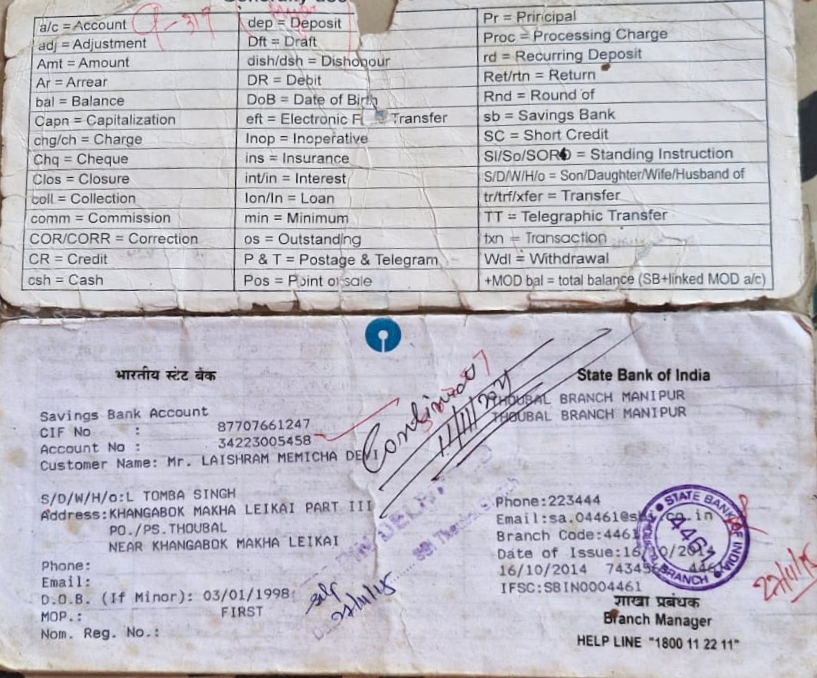 a/c = Account
adj = Adjustment
Amt = Amount
Ar = Arrear
bal = Balance
Capn = Capitalization
chg/ch = Charge
Chq = Cheque
Clos = Closure
coll = Collection
comm = Commission
COR/CORR = Correction
CR = Credit
csh = Cash
dep = Deposit
Dft = Draft
dish/dsh = Dishonour
DR = Debit
DoB = Date of Birth
eft = Electronic Transfer
Inop = Inoperative
ins = Insurance
int/in = Interest
lon/ln = Loan
min = Minimum
os = Outstanding
P & T = Postage & Telegram
Pos = Point of sale
Pr = Principal
Proc = Processing Charge
rd = Recurring Deposit
Ret/rtn = Return
Rnd = Round of
sb = Savings Bank
SC = Short Credit
SI/So/SORD = Standing Instruction
S/D/W/H/o = Son/Daughter/Wife/Husband of
tr/trf/xfer = Transfer
TT = Telegraphic Transfer
txn = Transaction
Wdl = Withdrawal
+MOD bal = total balance (SB+linked MOD a/c)
भारतीय स्टेट बैंक
Savings Bank Account
CIF No : 87707661247
Account No : 34223005458
Customer Name: Mr. LAISHRAM MEMICHA DEVI
S/D/W/H/o:L TOMBA SINGH
Address:KHANGABOK MAKHA LEIKAI PART III
PO./PS.THOUBAL
NEAR KHANGABOK MAKHA LEIKAI
Phone:
Email:
D.O.B. (If Minor): 03/01/1998
MOP.: FIRST
Nom. Reg. No.:
State Bank of India
THOUBAL BRANCH MANIPUR
THOUBAL BRANCH MANIPUR
Phone:223444
Email:sa.04461@sbi.co.in
Branch Code:4461
Date of Issue:16/10/2014
16/10/2014
IFSC:SBIN0004461
शाखा प्रबंधक
Branch Manager
HELP LINE "1800 11 22 11"
STATE BANK OF INDIA
THOUBAL BRANCH
4461
27/11/15